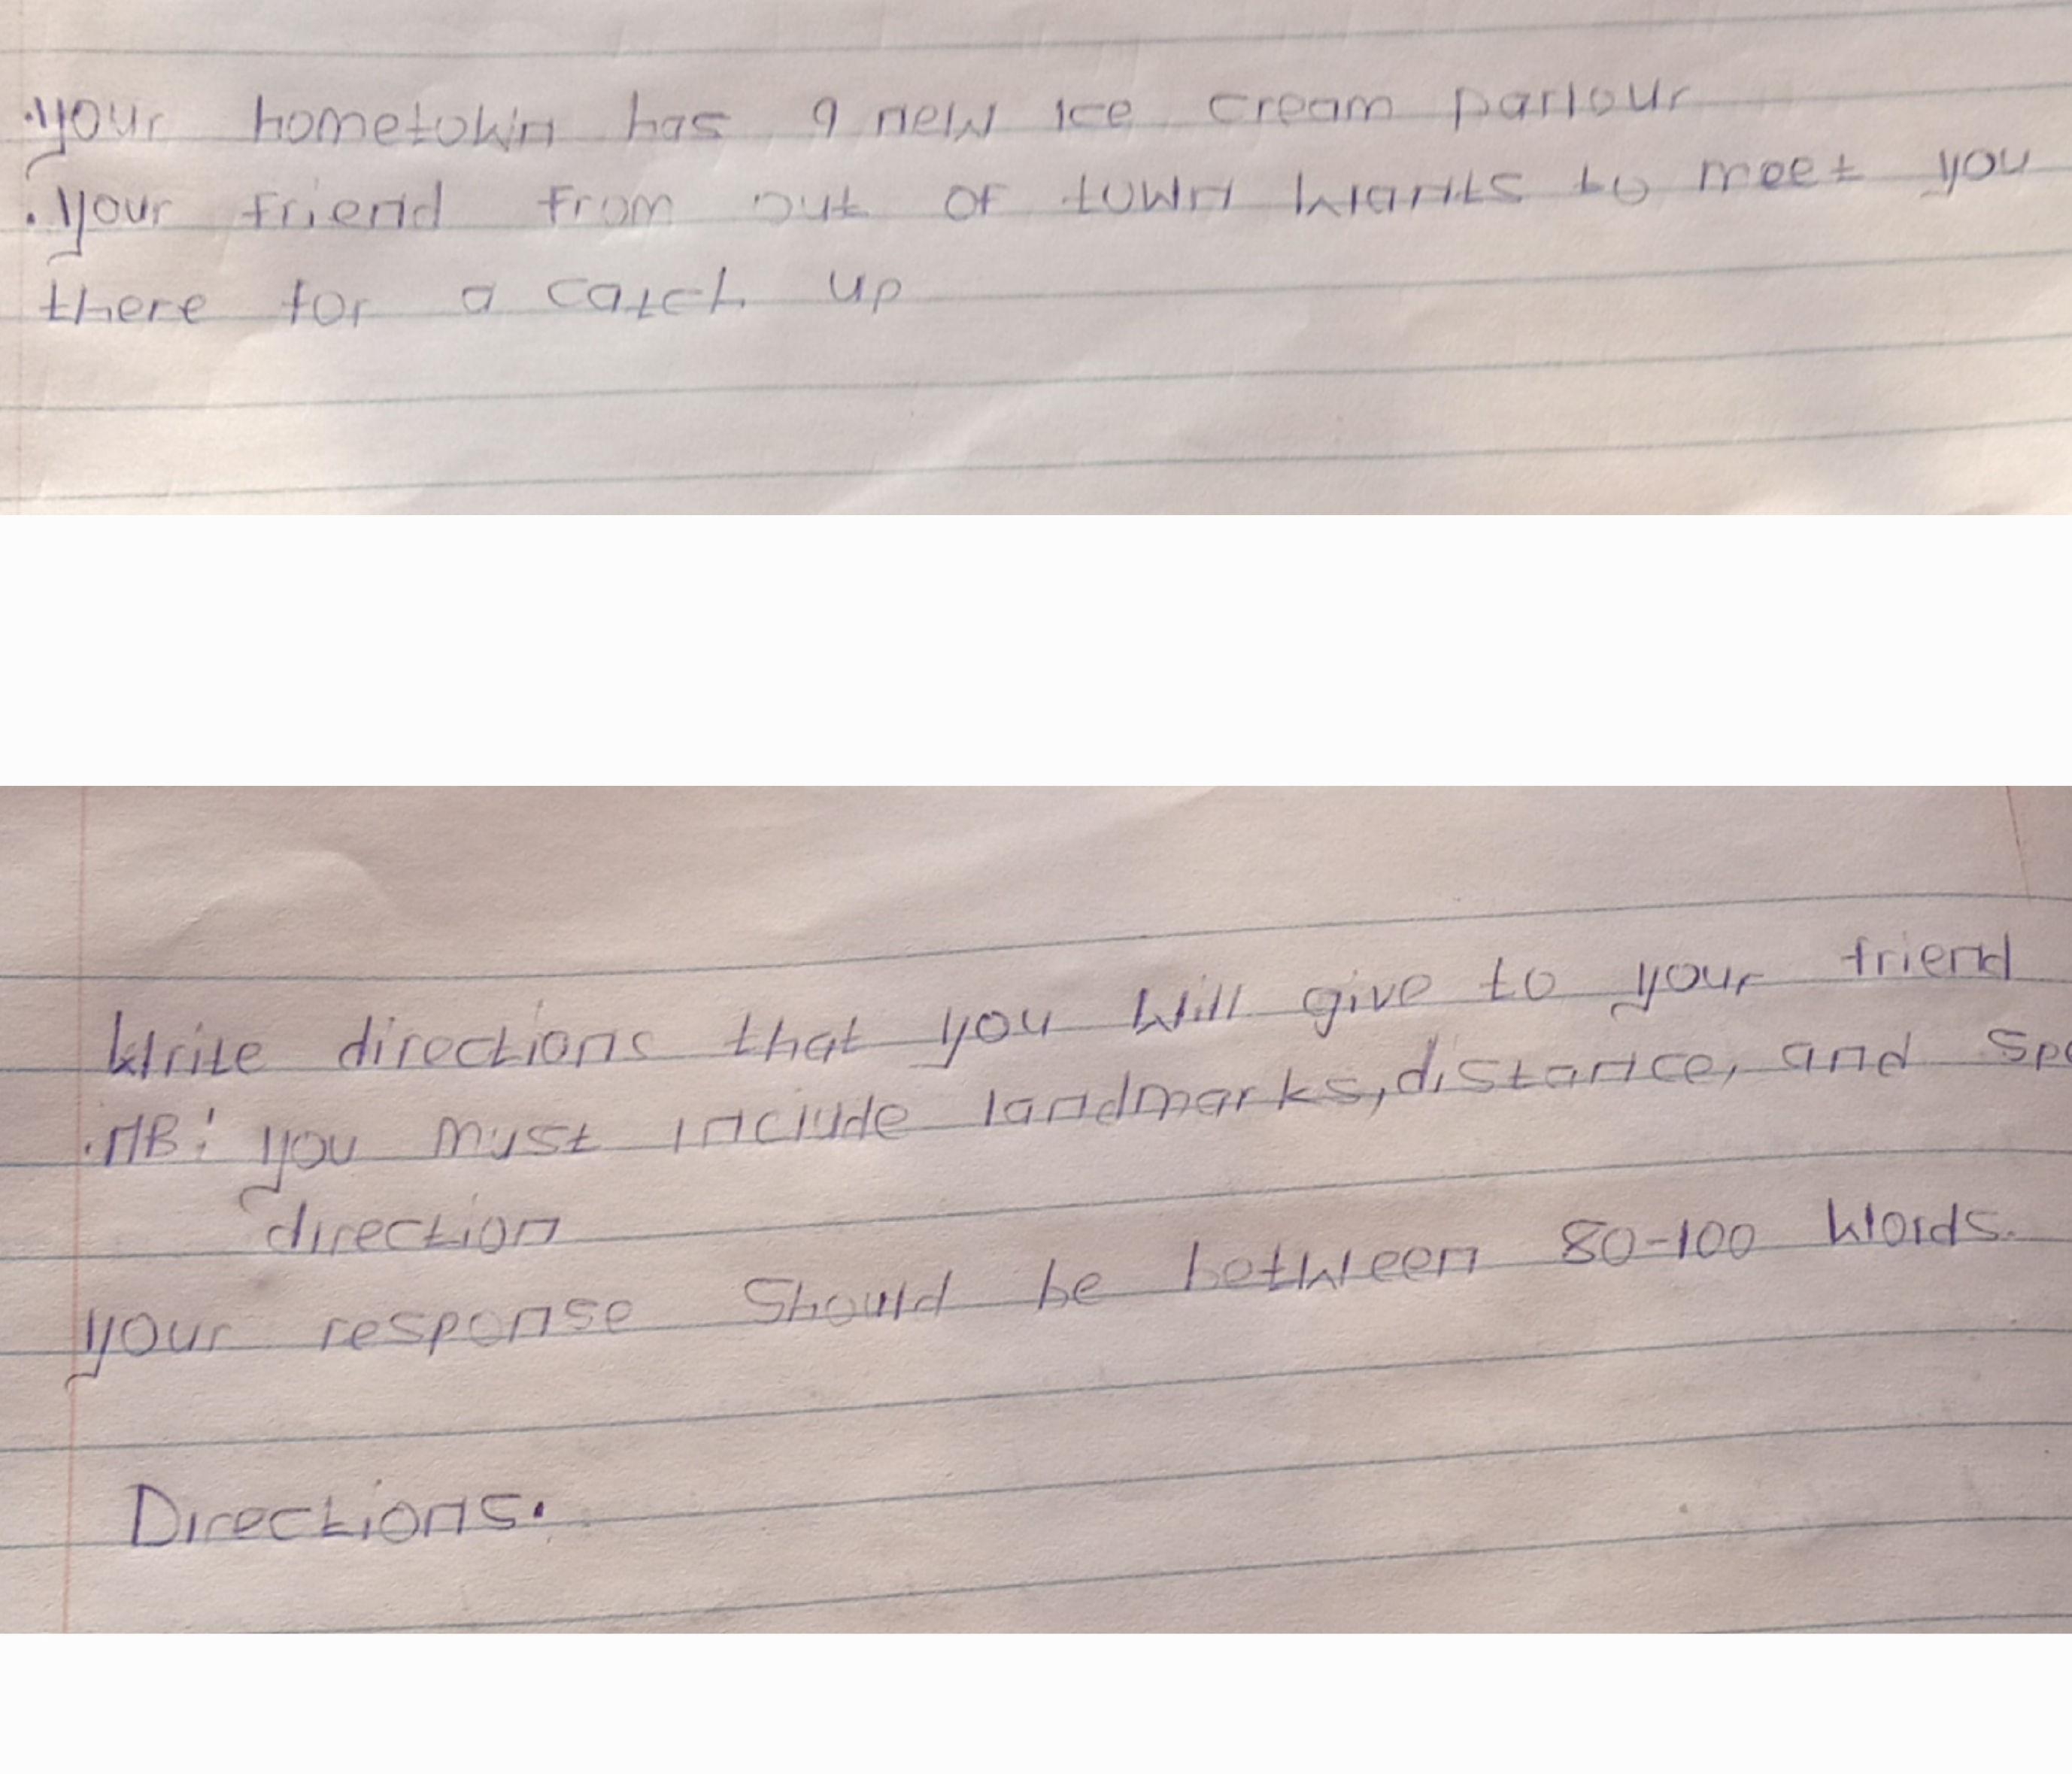 . your hometown has a new ice cream parlour
. your friend from out of town wants to meet you
there for a catch up
Write directions that you will give to your friend
. NB: you must include landmarks, distance, and
direction
your response should be between 80-100 words.
Directions.